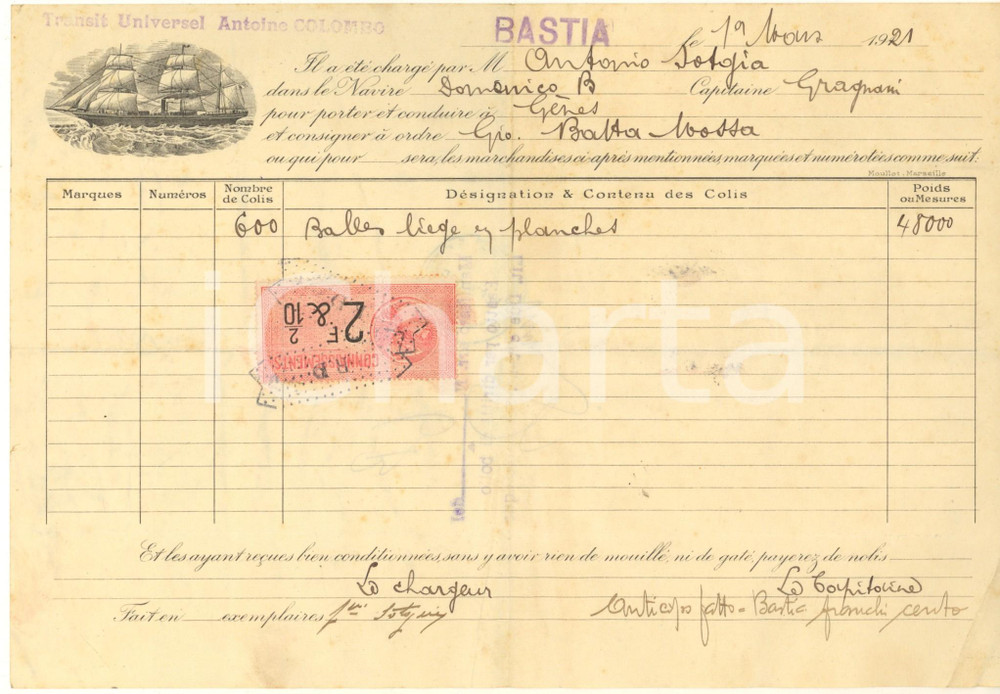 Transit Universel Antoine COLOMBO
BASTIA le 19 Mars 1921
Il a été chargé par M Antonio Sotgia
dans le Navire Domenico B Capitaine Gragnani
pour porter et conduire à Gènes
et consigner à ordre Gio. Batta Mossa
ou qui pour sera, les marchandises ci-après mentionnées, marquées et numérotées comme suit:
Moullot - Marseille
Marques Numéros Nombre de Colis Désignation & Contenu des Colis Poids ou Mesures
600 Balles liège en planches 48000
2F & 2/10
CONNAISSEMENTS
icharta
Et les ayant reçues bien conditionnées, sans y avoir rien de mouillé, ni de gaté, payerez de nolis
Le chargeur Le Capitaine
Fait en exemplaires
Anticipo fatto a Bastia franchi cento